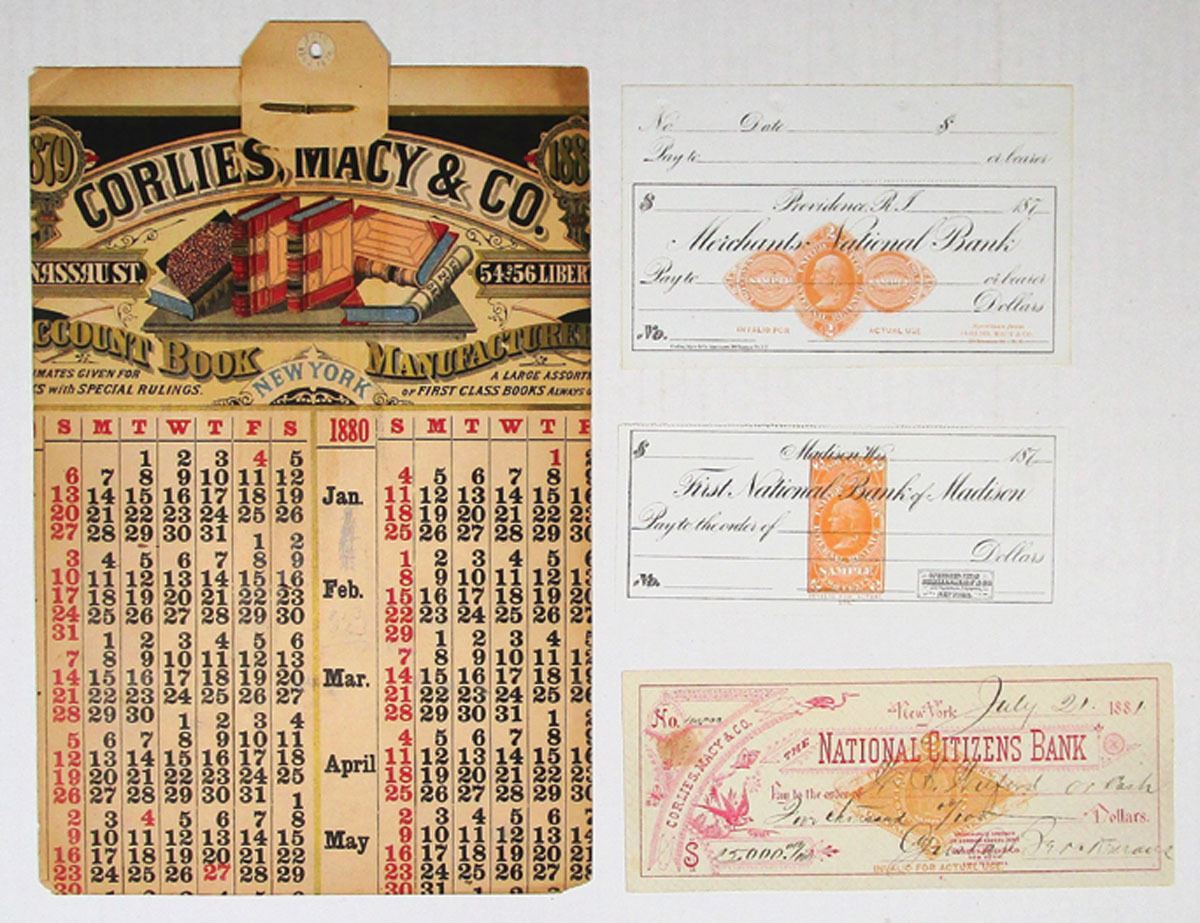 1879
188
CORLIES, MACY & CO.
NASSAU ST.
54 & 56 LIBER
CCOUNT BOOK MANUFACTURE
NEW YORK
MATES GIVEN FOR
S with SPECIAL RULINGS.
A LARGE ASSORT
OF FIRST CLASS BOOKS ALWAYS
S M T W T F S 1880 S M T W T F
1 2 3 4 5 1 2
6 7 8 9 10 11 12 Jan. 4 5 6 7 8 9
13 14 15 16 17 18 19 11 12 13 14 15
20 21 22 23 24 25 26 18 19 20 21 22
27 28 29 30 31 25 26 27 28 29
1 2
3 4 5 6 7 8 9 1 2 3 4 5
10 11 12 13 14 15 16 Feb. 8 9 10 11 12
17 18 19 20 21 22 23 15 16 17 18 19
24 25 26 27 28 29 30 22 23 24 25 26
31 29
1 2 3 4 5 6 1 2 3 4
7 8 9 10 11 12 13 7 8 9 10 11
14 15 16 17 18 19 20 Mar. 14 15 16 17 18
21 22 23 24 25 26 27 21 22 23 24 25
28 29 30 28 29 30 31
1 2 3 4 1
5 6 7 8 9 10 11 4 5 6 7 8
12 13 14 15 16 17 18 April 11 12 13 14 15
19 20 21 22 23 24 25 18 19 20 21 22
26 27 28 29 30 31 25 26 27 28 29
1
2 3 4 5 6 7 8 2 3 4 5 6
9 10 11 12 13 14 15 May 9 10 11 12 13
16 17 18 19 20 21 22 16 17 18 19 20
23 24 25 26 27 28 29 23 24 25 26 27
30 31 30 31
No. Date $
Pay to or bearer
$ Providence, R.I. 187
Merchants National Bank
Pay to or bearer
Dollars
SAMPLE SAMPLE
No. INVALID FOR ACTUAL USE
$ Madison Wis 187
First National Bank of Madison
Pay to the order of
Dollars
SAMPLE
No.
No.
New York July 21. 1881
CORLIES, MACY & CO.
THE NATIONAL CITIZENS BANK
Pay to the order of or Cash
Dollars.
$ 5,000
INVALID FOR ACTUAL USE